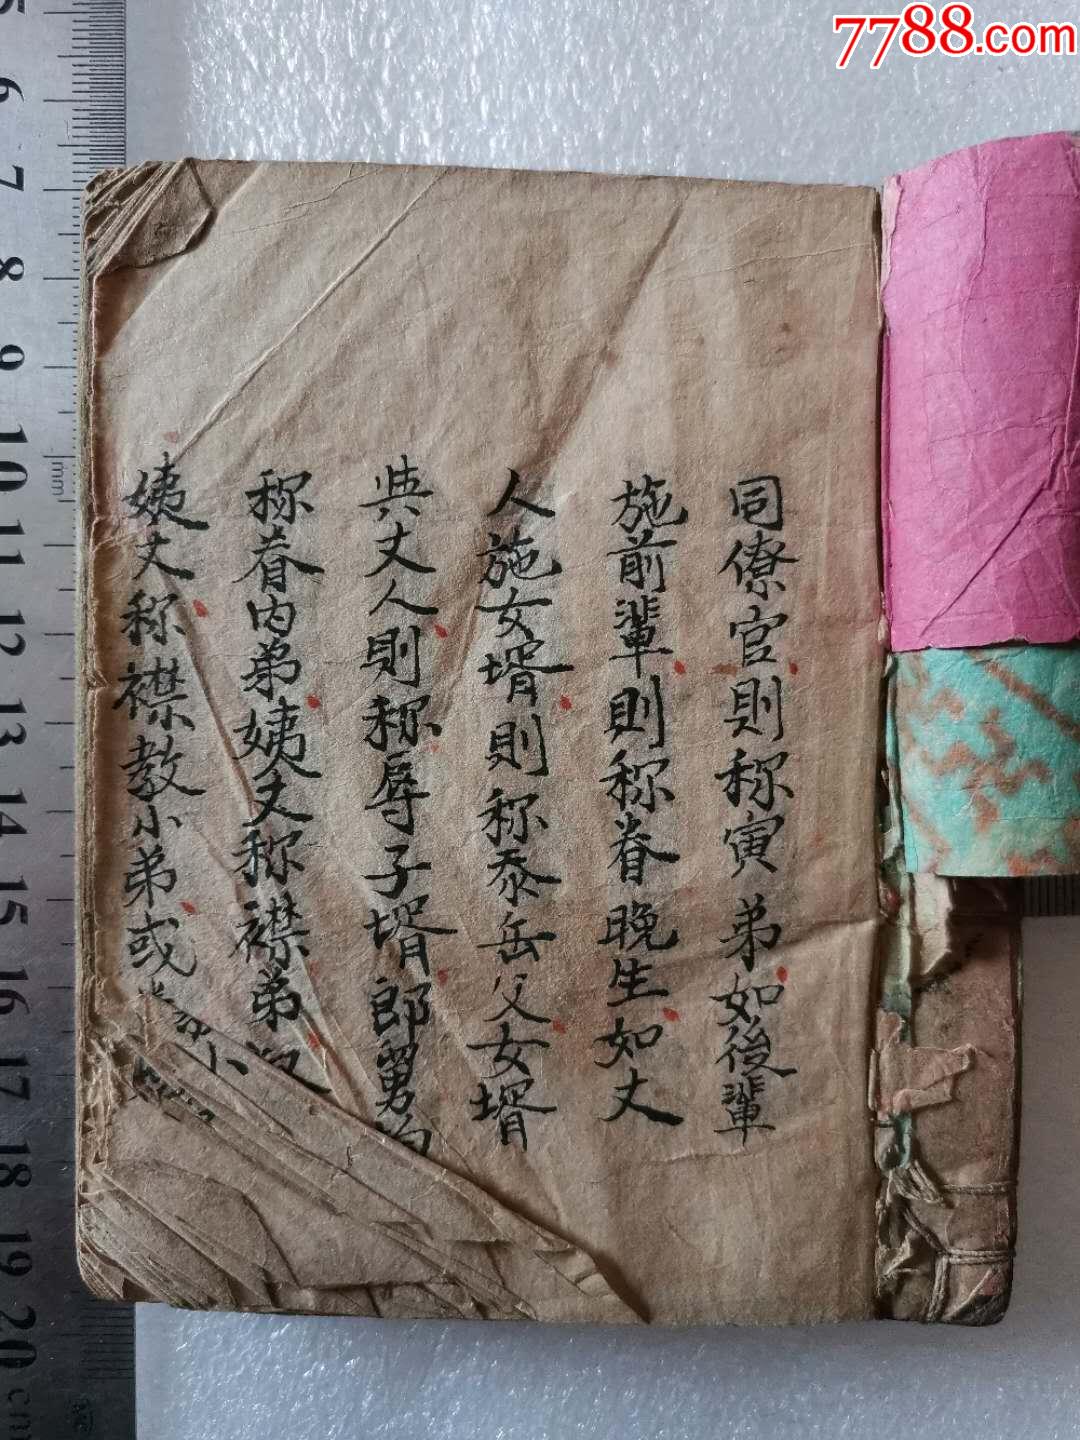 7788.com
同僚官則称寅弟如後輩
施前輩則称眷晚生如丈
人施女壻則称泰岳父女壻
與丈人則称辱子壻郎舅均
称眷内弟姨丈称襟弟叔
姨丈称襟教小弟或
5
6
7
8
9
10
11
12
13
14
15
16
17
18
19
20 cm